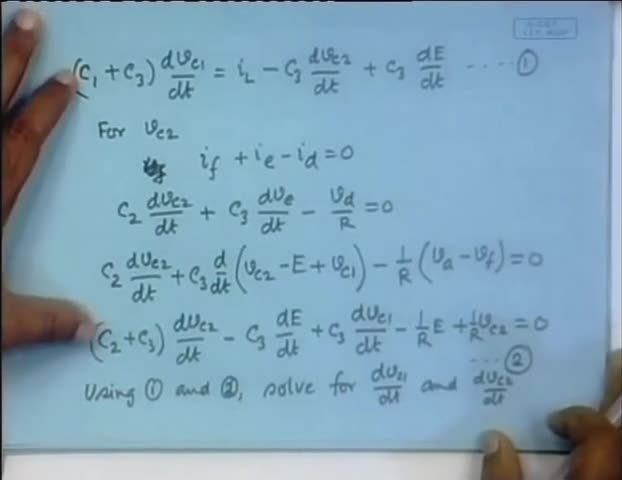 (C₁ + C₃) dv_c1/dt = i_L − C₃ dv_c2/dt + C₃ dE/dt ····· ①
For v_c2
i_f + i_e − i_d = 0
C₂ dv_c2/dt + C₃ dv_e/dt − v_d/R = 0
C₂ dv_c2/dt + C₃ d/dt (v_c2 − E + v_c1) − 1/R (v_a − v_f) = 0
(C₂ + C₃) dv_c2/dt − C₃ dE/dt + C₃ dv_c1/dt − 1/R E + 1/R v_c2 = 0
··· ②
Using ① and ②, solve for dv_c1/dt and dv_c2/dt